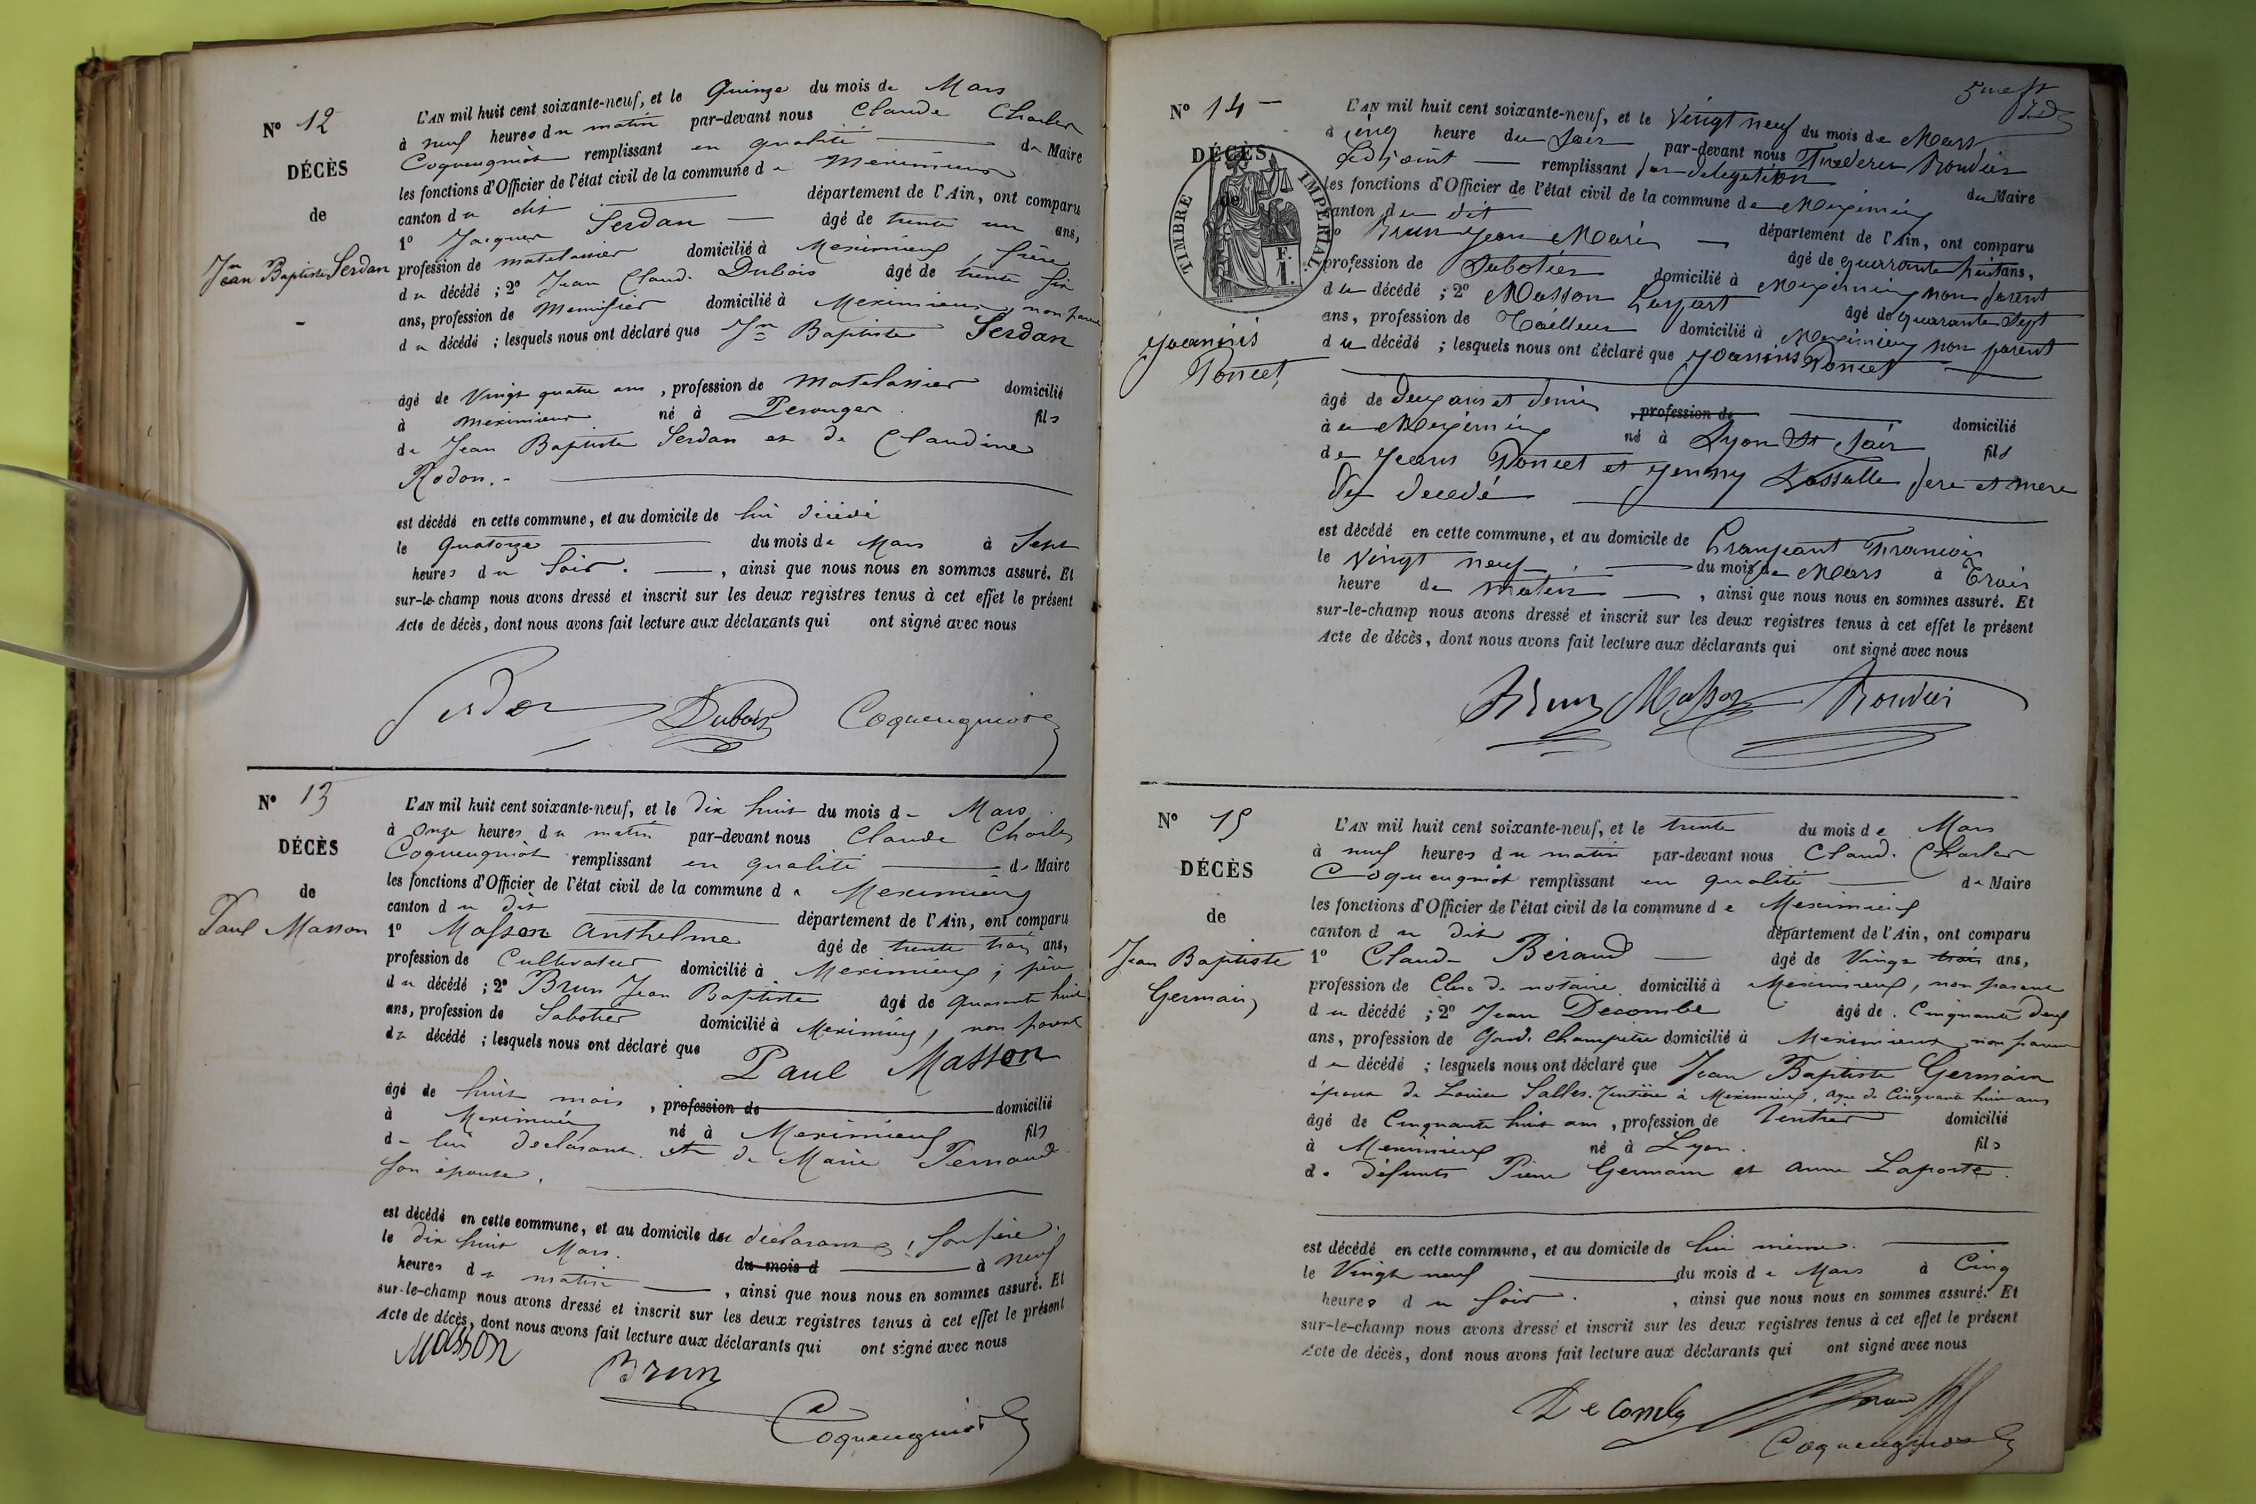 N° 12
DÉCÈS
de
Jn
Jean Baptiste Serdan
L'AN mil huit cent soixante-neuf, et le Quinze du mois de Mars
à neuf heures du matin par-devant nous Claude Charles
Coqueugniot remplissant en qualité de Maire
les fonctions d'Officier de l'état civil de la commune de Meximieux
canton du dit département de l'Ain, ont comparu
1° Jacques Serdan âgé de trente un ans,
profession de matelassier domicilié à Meximieux, frère
du décédé ; 2° Jean Claude Dubois âgé de trente six
ans, profession de Menuisier domicilié à Meximieux, non parent
du décédé ; lesquels nous ont déclaré que Jn Baptiste Serdan
âgé de Vingt quatre ans, profession de matelassier domicilié
à Meximieux né à Perouges fils
de Jean Baptiste Serdan et de Claudine
Rodon.
est décédé en cette commune, et au domicile de lui décédé
le Quatorze du mois de Mars à Sept
heures du soir. , ainsi que nous nous en sommes assuré. Et
sur-le-champ nous avons dressé et inscrit sur les deux registres tenus à cet effet le présent
Acte de décès, dont nous avons fait lecture aux déclarants qui ont signé avec nous
Serdan Dubois Coqueugniot
N° 13
DÉCÈS
de
Paul Masson
L'AN mil huit cent soixante-neuf, et le dix huit du mois de Mars
à onze heures du matin par-devant nous Claude Charles
Coqueugniot remplissant en qualité de Maire
les fonctions d'Officier de l'état civil de la commune de Meximieux
canton du dit département de l'Ain, ont comparu
1° Masson Anthelme âgé de trente trois ans,
profession de Cultivateur domicilié à Meximieux ; père
du décédé ; 2° Brun Jean Baptiste âgé de quarante huit
ans, profession de Sabotier domicilié à Meximieux, non parent
du décédé ; lesquels nous ont déclaré que
Paul Masson
âgé de huit mois , profession de domicilié
à Meximieux né à Meximieux fils
de lui déclarant et de Marie Pernoud
son épouse.
est décédé en cette commune, et au domicile du déclarant, son père
le dix huit Mars. du mois d à neuf
heures du matin , ainsi que nous nous en sommes assuré. Et
sur-le-champ nous avons dressé et inscrit sur les deux registres tenus à cet effet le présent
Acte de décès, dont nous avons fait lecture aux déclarants qui ont signé avec nous
Masson
Brun
Coqueugniot
N° 14
DÉCÈS
de
TIMBRE IMPÉRIAL
F.
1.
Joannis
Poncet
L'AN mil huit cent soixante-neuf, et le Vingt neuf du mois de Mars
à cinq heure du soir par-devant nous Frederic Roudier
adjoint remplissant par delegation du Maire
les fonctions d'Officier de l'état civil de la commune de Meximieux
canton du dit département de l'Ain, ont comparu
1° Brun Jean Marie âgé de quarante huit ans,
profession de Sabotier domicilié à Meximieux non parent
du décédé ; 2° Masson Gaspart âgé de quarante sept
ans, profession de Tailleur domicilié à Meximieux non parent
du décédé ; lesquels nous ont déclaré que Joannis Poncet
âgé de deux ans et demi , profession de domicilié
à Meximieux né à Lyon St Clair fils
de Jean Poncet et Jenny Lassalle pere et mere
du decedé
est décédé en cette commune, et au domicile de Granjeant Francois
le Vingt neuf du mois de Mars à Trois
heure de matin , ainsi que nous nous en sommes assuré. Et
sur-le-champ nous avons dressé et inscrit sur les deux registres tenus à cet effet le présent
Acte de décès, dont nous avons fait lecture aux déclarants qui ont signé avec nous
Brun Masson Roudier
N° 15
DÉCÈS
de
Jean Baptiste
Germain
L'AN mil huit cent soixante-neuf, et le trente du mois de Mars
à neuf heures du matin par-devant nous Claude Charles
Coqueugniot remplissant en qualité de Maire
les fonctions d'Officier de l'état civil de la commune de Meximieux
canton du dit département de l'Ain, ont comparu
1° Claude Béraud âgé de Vingt trois ans,
profession de Clerc de notaire domicilié à Meximieux, non parent
du décédé ; 2° Jean Decombe âgé de Cinquante deux
ans, profession de Garde Champêtre domicilié à Meximieux non parent
du décédé ; lesquels nous ont déclaré que Jean Baptiste Germain
époux de Louise Salles, rentière à Meximieux, agée de Cinquante huit ans
âgé de Cinquante huit ans , profession de rentier domicilié
à Meximieux né à Lyon. fils
de défunts Pierre Germain et anne Laporte.
est décédé en cette commune, et au domicile de lui même.
le Vingt neuf du mois de Mars à Cinq
heures du soir. , ainsi que nous nous en sommes assuré. Et
sur-le-champ nous avons dressé et inscrit sur les deux registres tenus à cet effet le présent
Acte de décès, dont nous avons fait lecture aux déclarants qui ont signé avec nous
Decombe Béraud
Coqueugniot